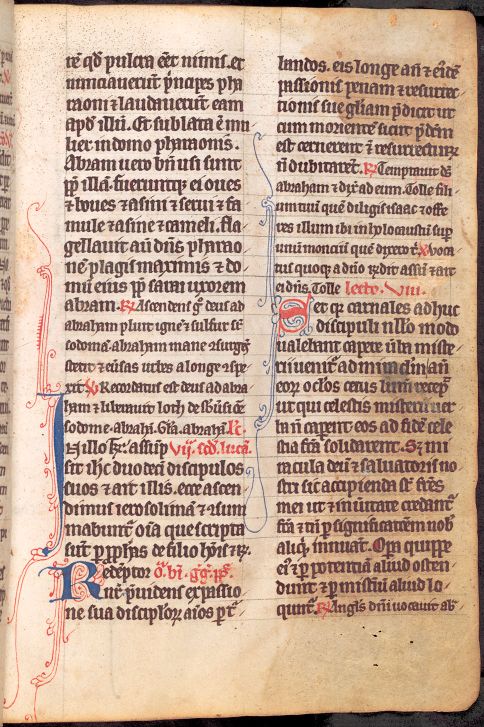 rē qđ pulcra eēt nimis. et
nunciauerūt p̄ncipes pha
raoni ⁊ laudauerūt eam
apđ illū. Et sublata ē mu
lier in domo pharaonis.
Abram uero bn̄ usi sunt
pp̄ illā. fueruntqȝ ei oues
⁊ boues ⁊ asini ⁊ serui ⁊ fa
mule ⁊ asine ⁊ cameli. fla
gellauit aū dn̄s pharao
nē plagis maximis ⁊ do
mū eius pp̄ sarai uxorem
abram. ℟ Ascendens gͦ deus ad
abraham pluit ignē ⁊ sulfur sr̄
sodomā. abraham mane ɔsurgēs
stetit ⁊ cūsas urbes a longe ɔspe
xit. ℣ Recordatus est deus ad abra
ham ⁊ liberauit loth de
sodome. abrahā. Gl̄a. abrahā. R̄.
N illo t̄r. assūp VIJ. scđ. lucā.
sit ih̄c duodecī discipulos
suos ⁊ ait illis. ecce ascen
dimus ierosolimā ⁊ ɔsum
mabunt̄ oīa que scripta
sūt p ꝓph̄as de filio hoīs ⁊ꝛ.
Redēptor o. bī. gg. pp.
nr̄ p̄uidens ex passio
ne sua disciplōꝝ aīos ꝑt
landos. eis longe añ ⁊ eīdē
passionis penam ⁊ resurrec
tionis sue gl̄iam p̄dicit ut
cum morientē sicut p̄dixͭ
est cernerent ⁊ resurrecturū
n̄ dubitarēt. ℟ Temptauit ds̄
abraham ⁊ dix̄ ad eum. Tolle fili
um tuū quē diligis isaac ⁊ offe
res illum ibi in holocaustū sup
unū monciū quē dixero t̄. ℣ Voca
tus quoqȝ a dn̄o rn̄dit assū ⁊ ait
ei dn̄s. Tolle lectio. VIII.
Set qꝛ carnales adhuc
discipuli nłło modo
ualebant capere ūba miste
rii uenit̄ ad miraclm̄ añ
eoꝝ oclōs cecus lum̄ recep̄
ut qui celestis misterii uer
ba n̄ caperent eos ad fidē cele
stia fc̄a solidarent. Sȝ mi
racula dn̄i ⁊ saluatoris no
stri sic accipienda st̄ fr̄s
mei ut ⁊ in ūitate credant̄
fc̄a ⁊ tn̄ ꝑ significatōem nob̄
aliqͥ innuāt. Opa quippe
eīꝰ ⁊ ꝑ potentiā aliud osten
dunt ⁊ ꝑ misteriū aliud lo
qūnt. ℟ Angl̄s dn̄i uocauit ab̄